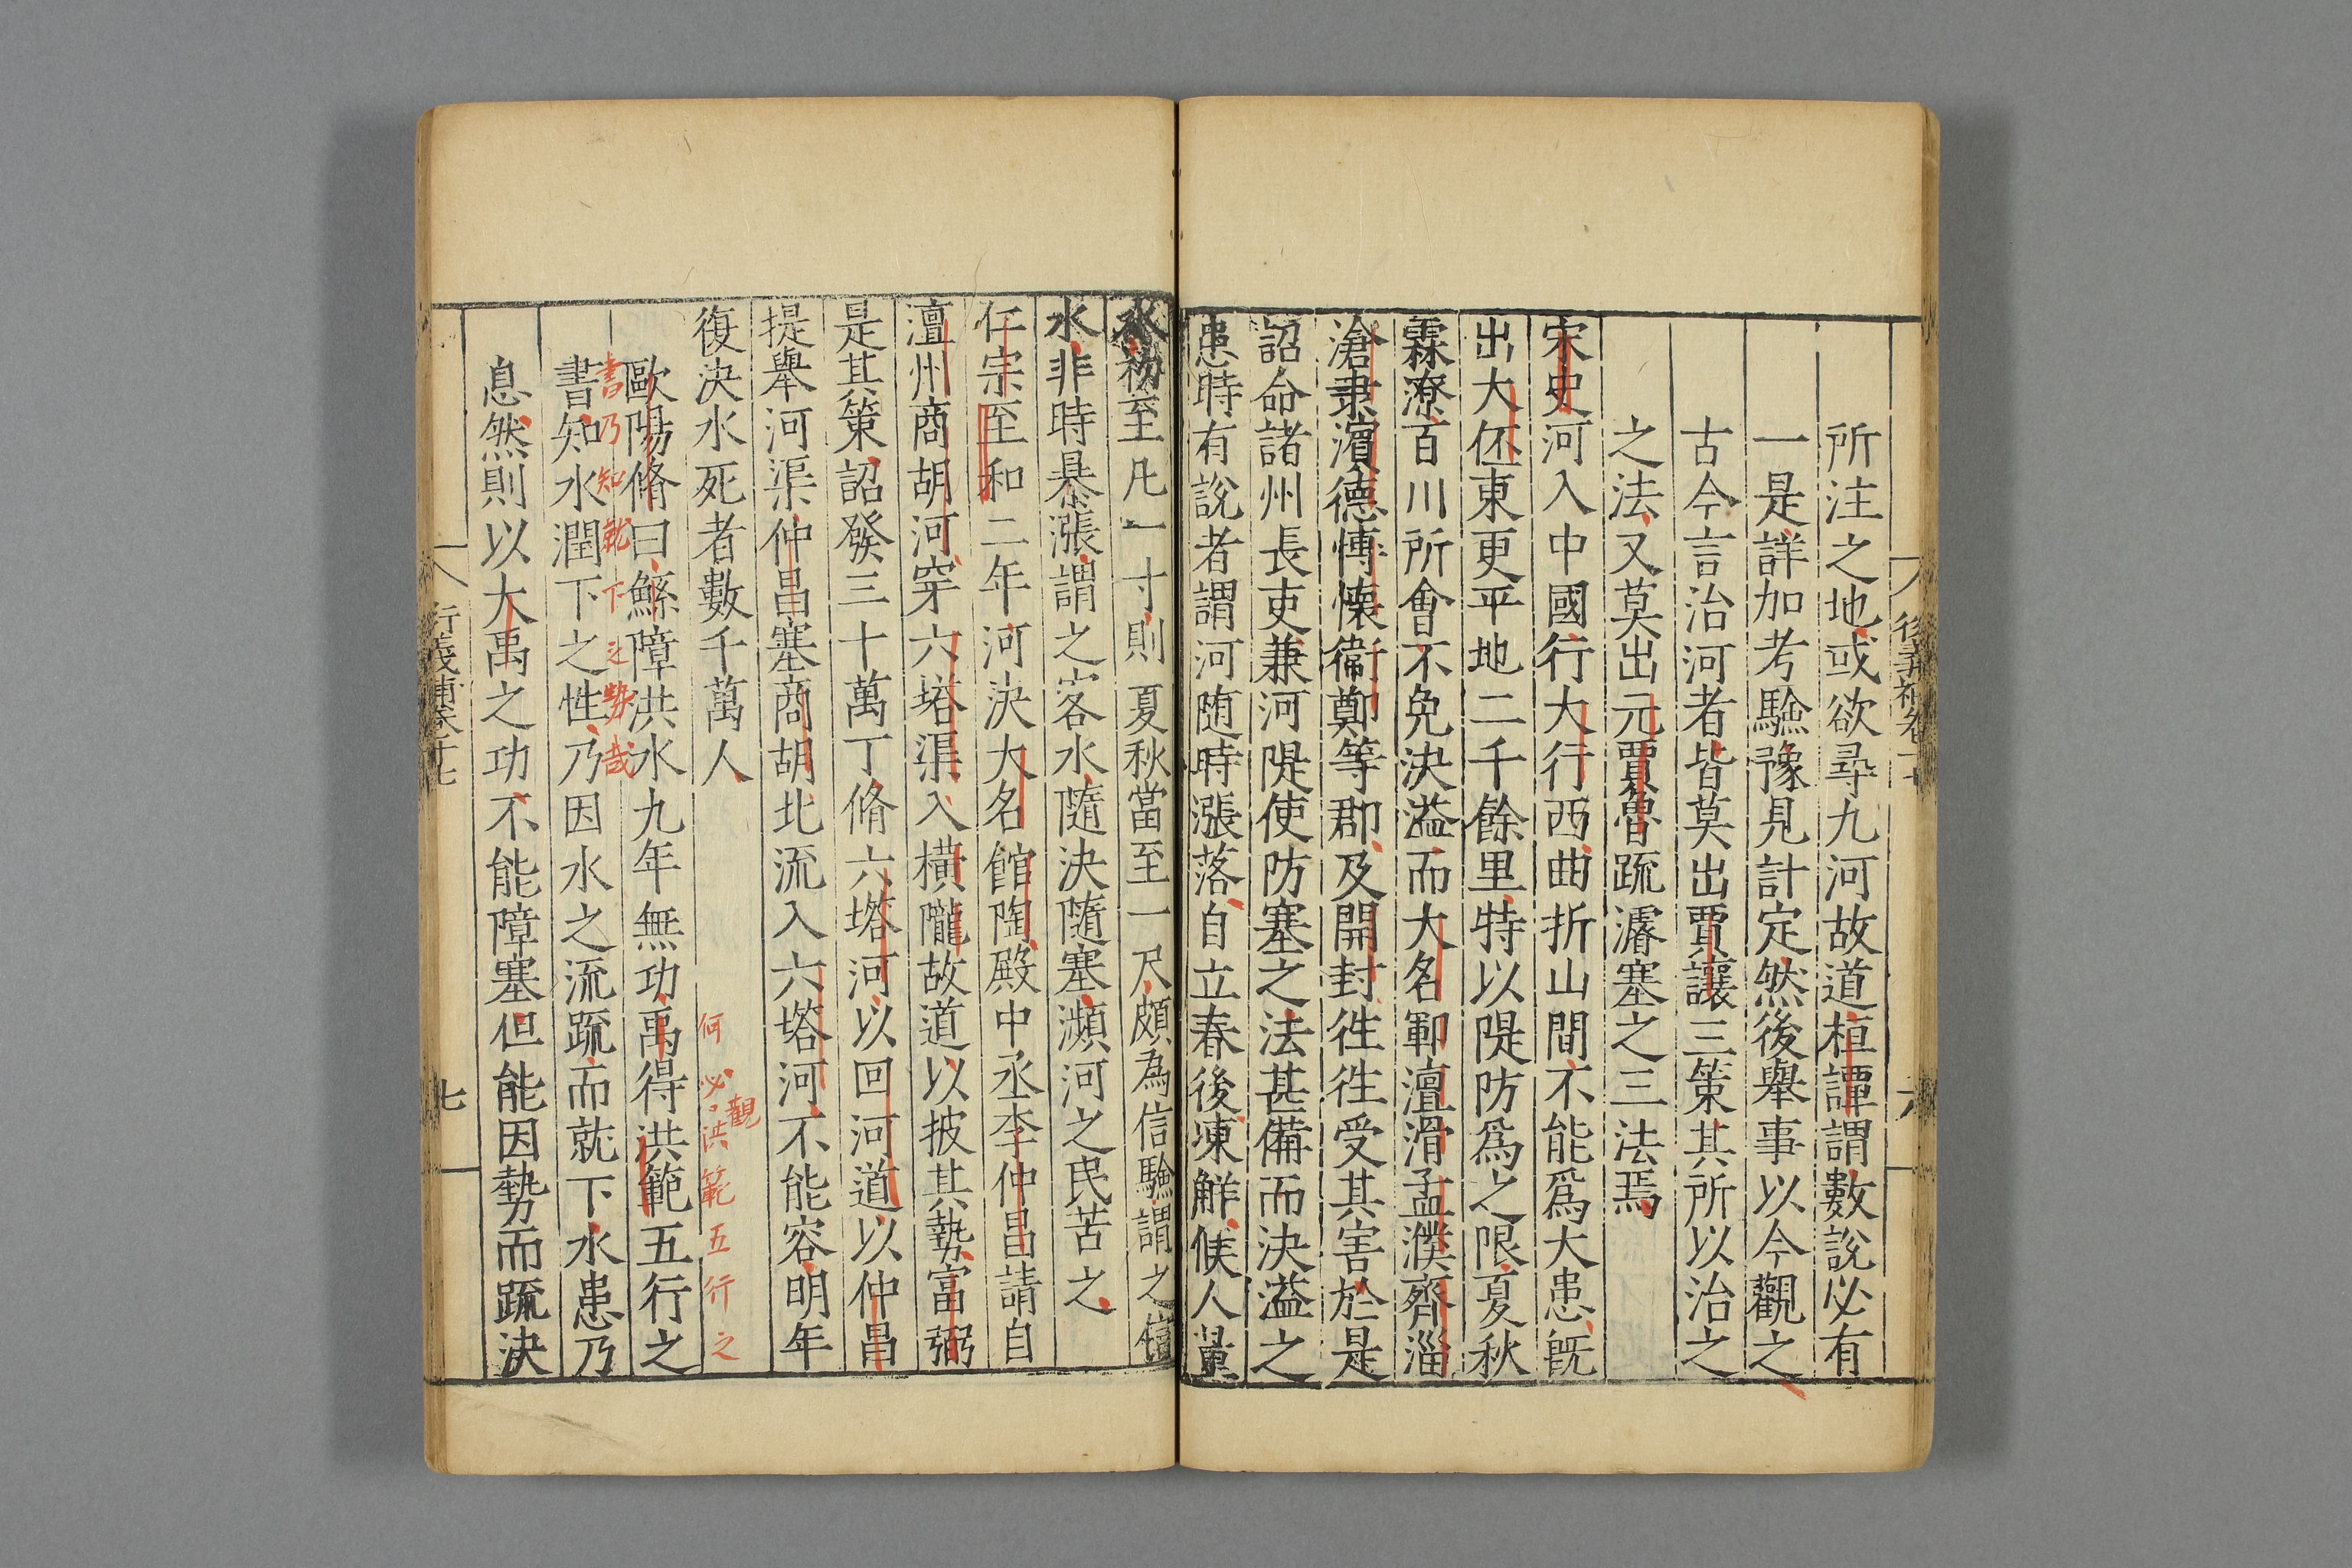 所注之地或欲尋九河故道桓譚謂數說必有
一是詳加考驗豫見計定然後舉事以今觀之
古今言治河者皆莫出賈讓三策其所以治之
之法又莫出元賈魯疏濬塞之三法焉
宋史河入中國行大行西曲折山間不能爲大患旣
出大伾東更平地二千餘里特以隄防爲之限夏秋
霖潦百川所會不免決溢而大名鄆澶滑孟濮齊淄
滄隶濵德愽懷衛鄭等郡及開封徃徃受其害於是
詔命諸州長吏兼河隄使防塞之法甚備而決溢之
患時有說者謂河随時漲落自立春後凍解候人量
水初至凡一寸則夏秋當至一尺頗為信驗謂之信
水非時暴漲謂之客水隨決隨塞瀕河之民苦之
仁宗至和二年河決大名館陶殿中丞李仲昌請自
澶州商胡河穿六塔渠入橫隴故道以披其勢富弼
是其策詔發三十萬丁脩六塔河以回河道以仲昌
提舉河渠仲昌塞商胡北流入六塔河不能容明年
復決水死者數千萬人
何必觀洪範五行之
歐陽脩曰鯀障洪水九年無功禹得洪範五行之
書乃知就下之勢哉
書知水潤下之性乃因水之流疏而就下水患乃
息然則以大禹之功不能障塞但能因勢而疏決
行義補卷十七
七